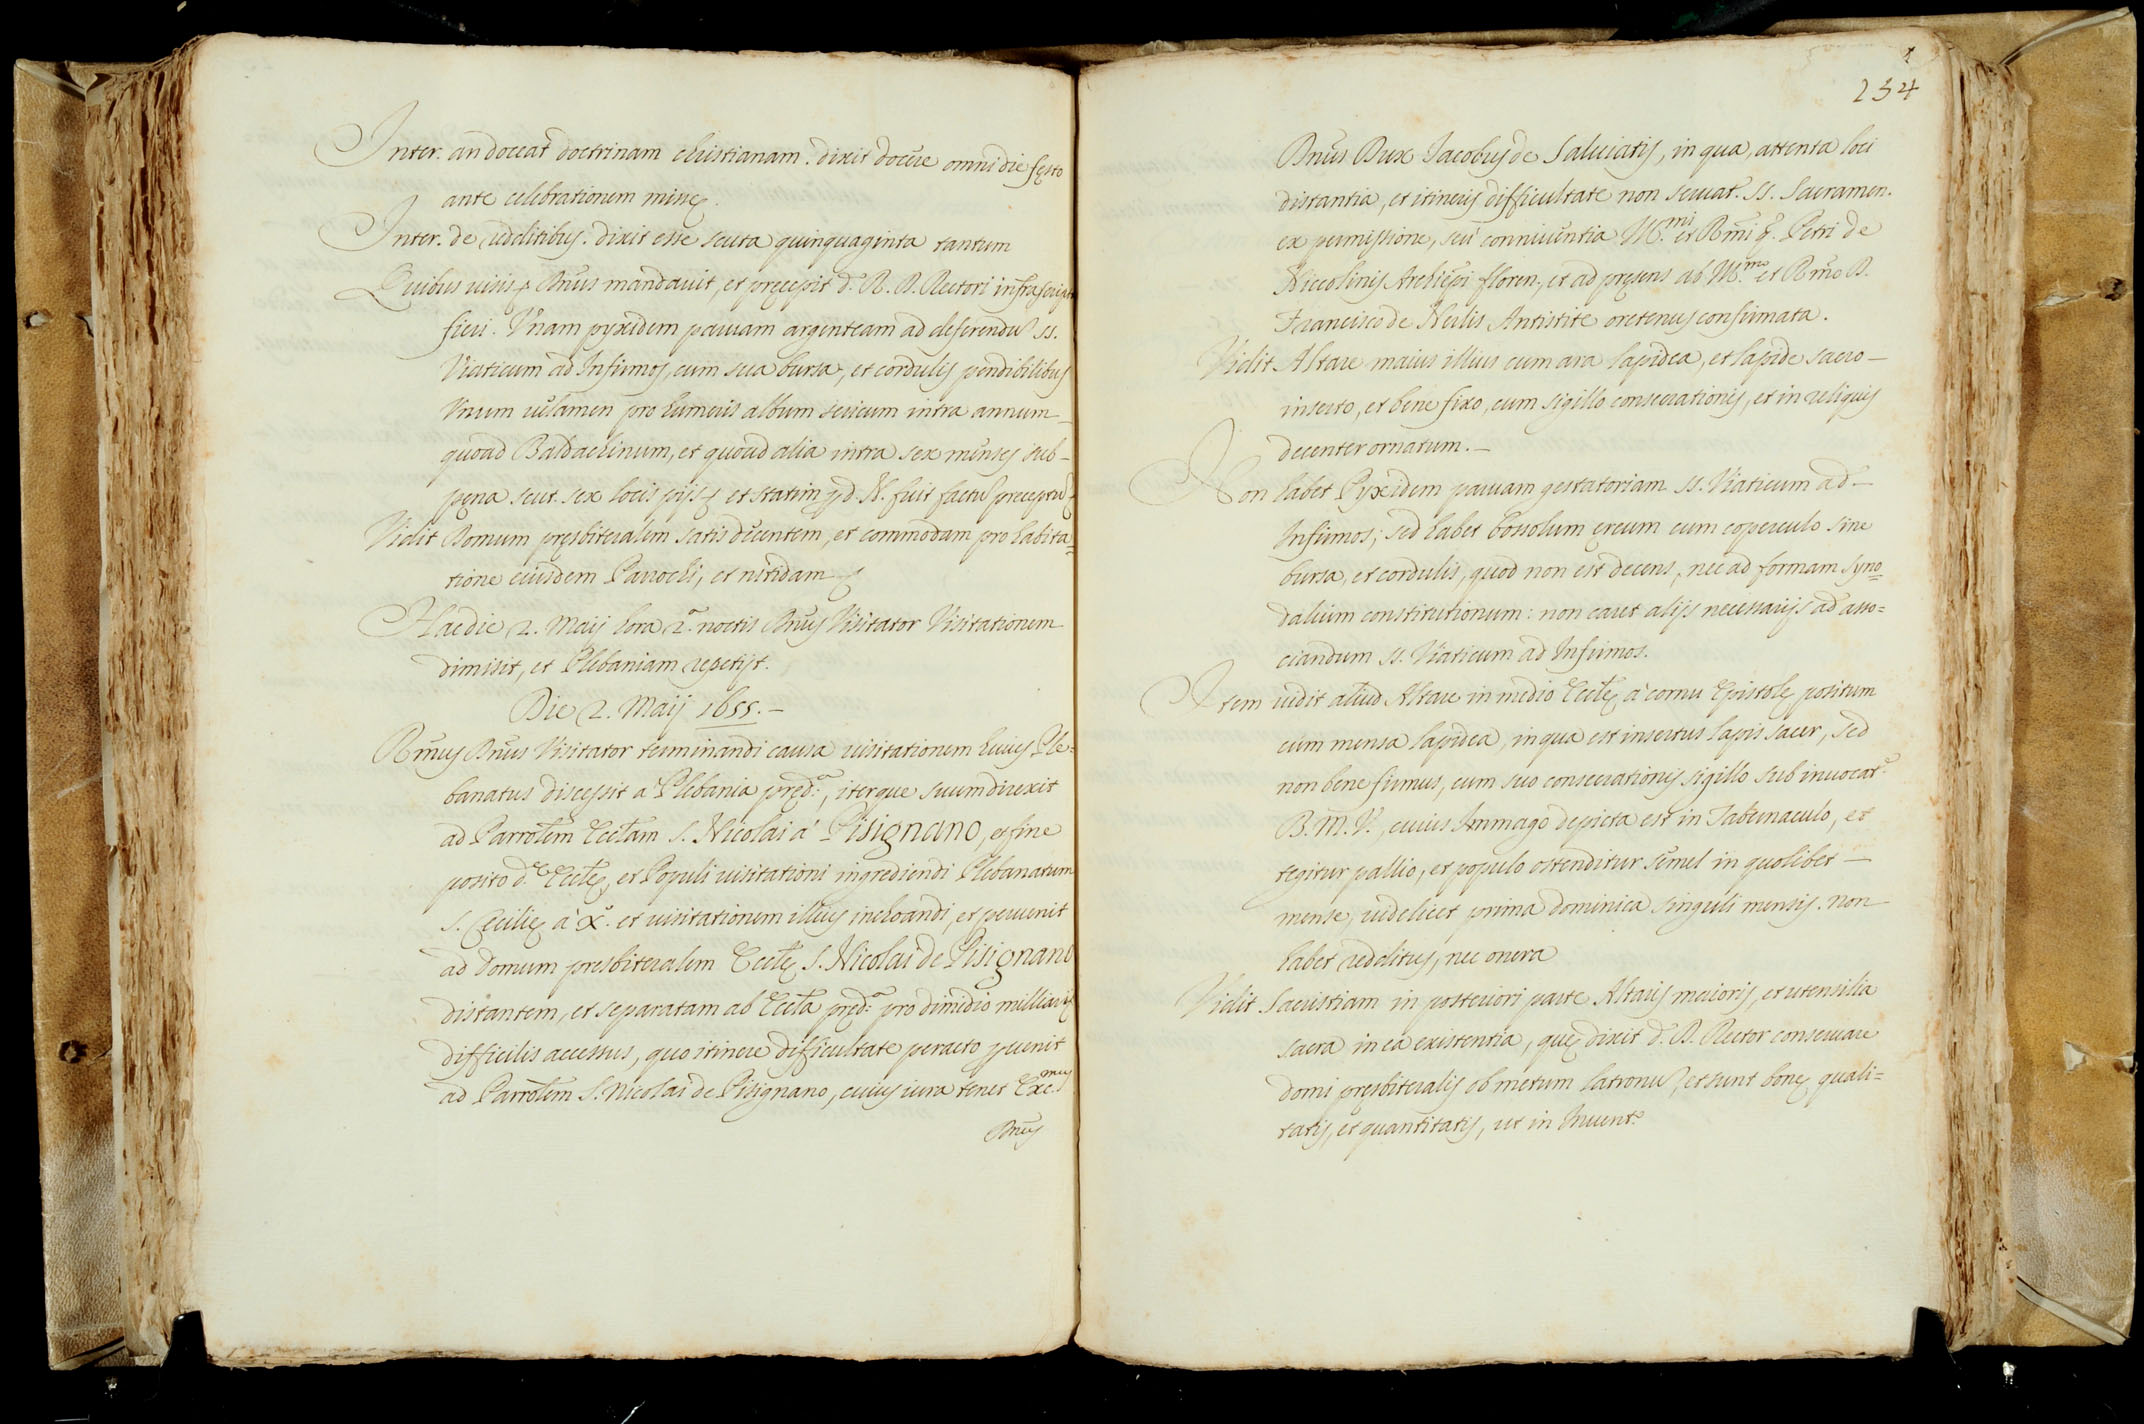 Inter. an doceat doctrinam christianam. dixit docere omni die festo
ante celebrationem missę.
Inter. de redditibus. dixit esse scuta quinquaginta tantum
Quibus visis Dnus mandavit, et pręcepit d. R. D. Rectori infrascripta
fieri. Unam pyxidem parvam argenteam ad deferendu ss.
Viaticum ad Infirmos, cum sua bursa, et cordulis pendibilibus
Unum velamen pro humeris album sericum intra annum
quoad Baldachinum, et quoad alia intra sex menses sub-
pęna scut. sex locis pijs et statim fuit factu preceptu
Vidit Domum pręsbiteralem satis decentem, et commodam pro habita=
tione eiusdem Parrochi, et nitidam
Hac die 2. Maij hora 2.ª noctis Dnus Visitator Visitationem
dimisit, et Plebaniam repetijt.
Die 2. Maij 1655.-
Rmus Dnus Visitator terminandi causa visitationem huius Ple=
banatus discessit a Plebania pręd.ª, iterque suum direxit
ad Parrolem Ecclam S. Nicolai à Pisignano, et fine
posito d.ę Ecclę, et Populi visitationi ingrediendi Plebanatum
S. Cecilię à X. et visitationem illius inchoandi, et pervenit
ad Domum presbiteralem Ecclę S. Nicolai de Pisignano
distantem, et separatam ab Eccla pręd.ª pro dimidio milliaris
difficilis accessus, quo itinere difficultate peracto pvenit
ad Parrolem S. Nicolai de Pisignano, cuius iura tenet Exc.mus
Dnus
234
Dnus Dux Iacobus de Salviatis, in qua, attenta loci
distantia, et itineris difficultate non servat. ss. Sacramen.
ex permissione, seu conniventia Ill.mi et Rmi q. Petri de
Niccolinis Archiepi floren., et ad pręsens ab Ill.mo et Rmo D.
Francisco de Nerlis Antistite oretenus confirmata.
Vidit Altare maius illius cum ara lapidea, et lapide sacro-
inserto, et bene fixo, cum sigillo consecrationis, et in reliquis
decenter ornatum.-
Non habet Pyxidem parvam gestatoriam ss. Viaticum ad-
Infirmos; sed habet bossolum ęreum cum coperculo sine
bursa, et cordulis, quod non est decens, nec ad formam syno=
dalium constitutionum: non caret alijs necessarijs ad asso=
ciandum ss. Viaticum ad Infirmos.
Item vidit aliud Altare in medio Ecclę à cornu Epistolę positum
cum mensa lapidea, in qua est insertus lapis sacer, sed
non bene firmus, cum suo consecrationis sigillo sub invocat.e
B. M. V., cuius Immago depicta est in Tabernaculo, et
tegitur pallio, et populo ostenditur semel in quolibet-
mense, videlicet prima dominica singuli mensis. non
habet redditus, nec onera
Vidit Sacristiam in posteriori parte Altaris maioris, et utensilia
sacra in ea existentia, quę dixit d. D. Rector conservare
domi pręsbiteralis ob metum latronu, et sunt bonę quali=
tatis, et quantitatis, ut in Invent.o